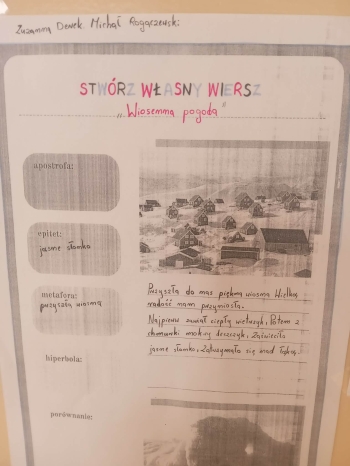 Zuzanna Denek Michał Rogaczewski
STWÓRZ WŁASNY WIERSZ
„Wiosenna pogoda"
apostrofa:
epitet:
jasne słonko
metafora:
przyszła wiosna
hiperbola:
porównanie:
Przyszła do nas piękna wiosna Wielką
radość nam przyniosła.
Najpierw zawiał ciepły wietrzyk, Potem z
chmurki mokry deszczyk, Zaświeciło
jasne słonko, Zatrzymało się nad łąką.